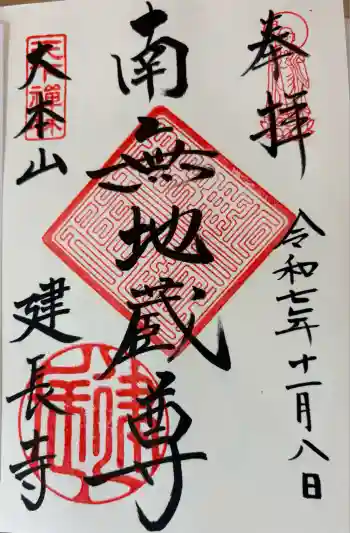 奉拝
令和七年十一月八日
南無地蔵尊
大本山
建長寺